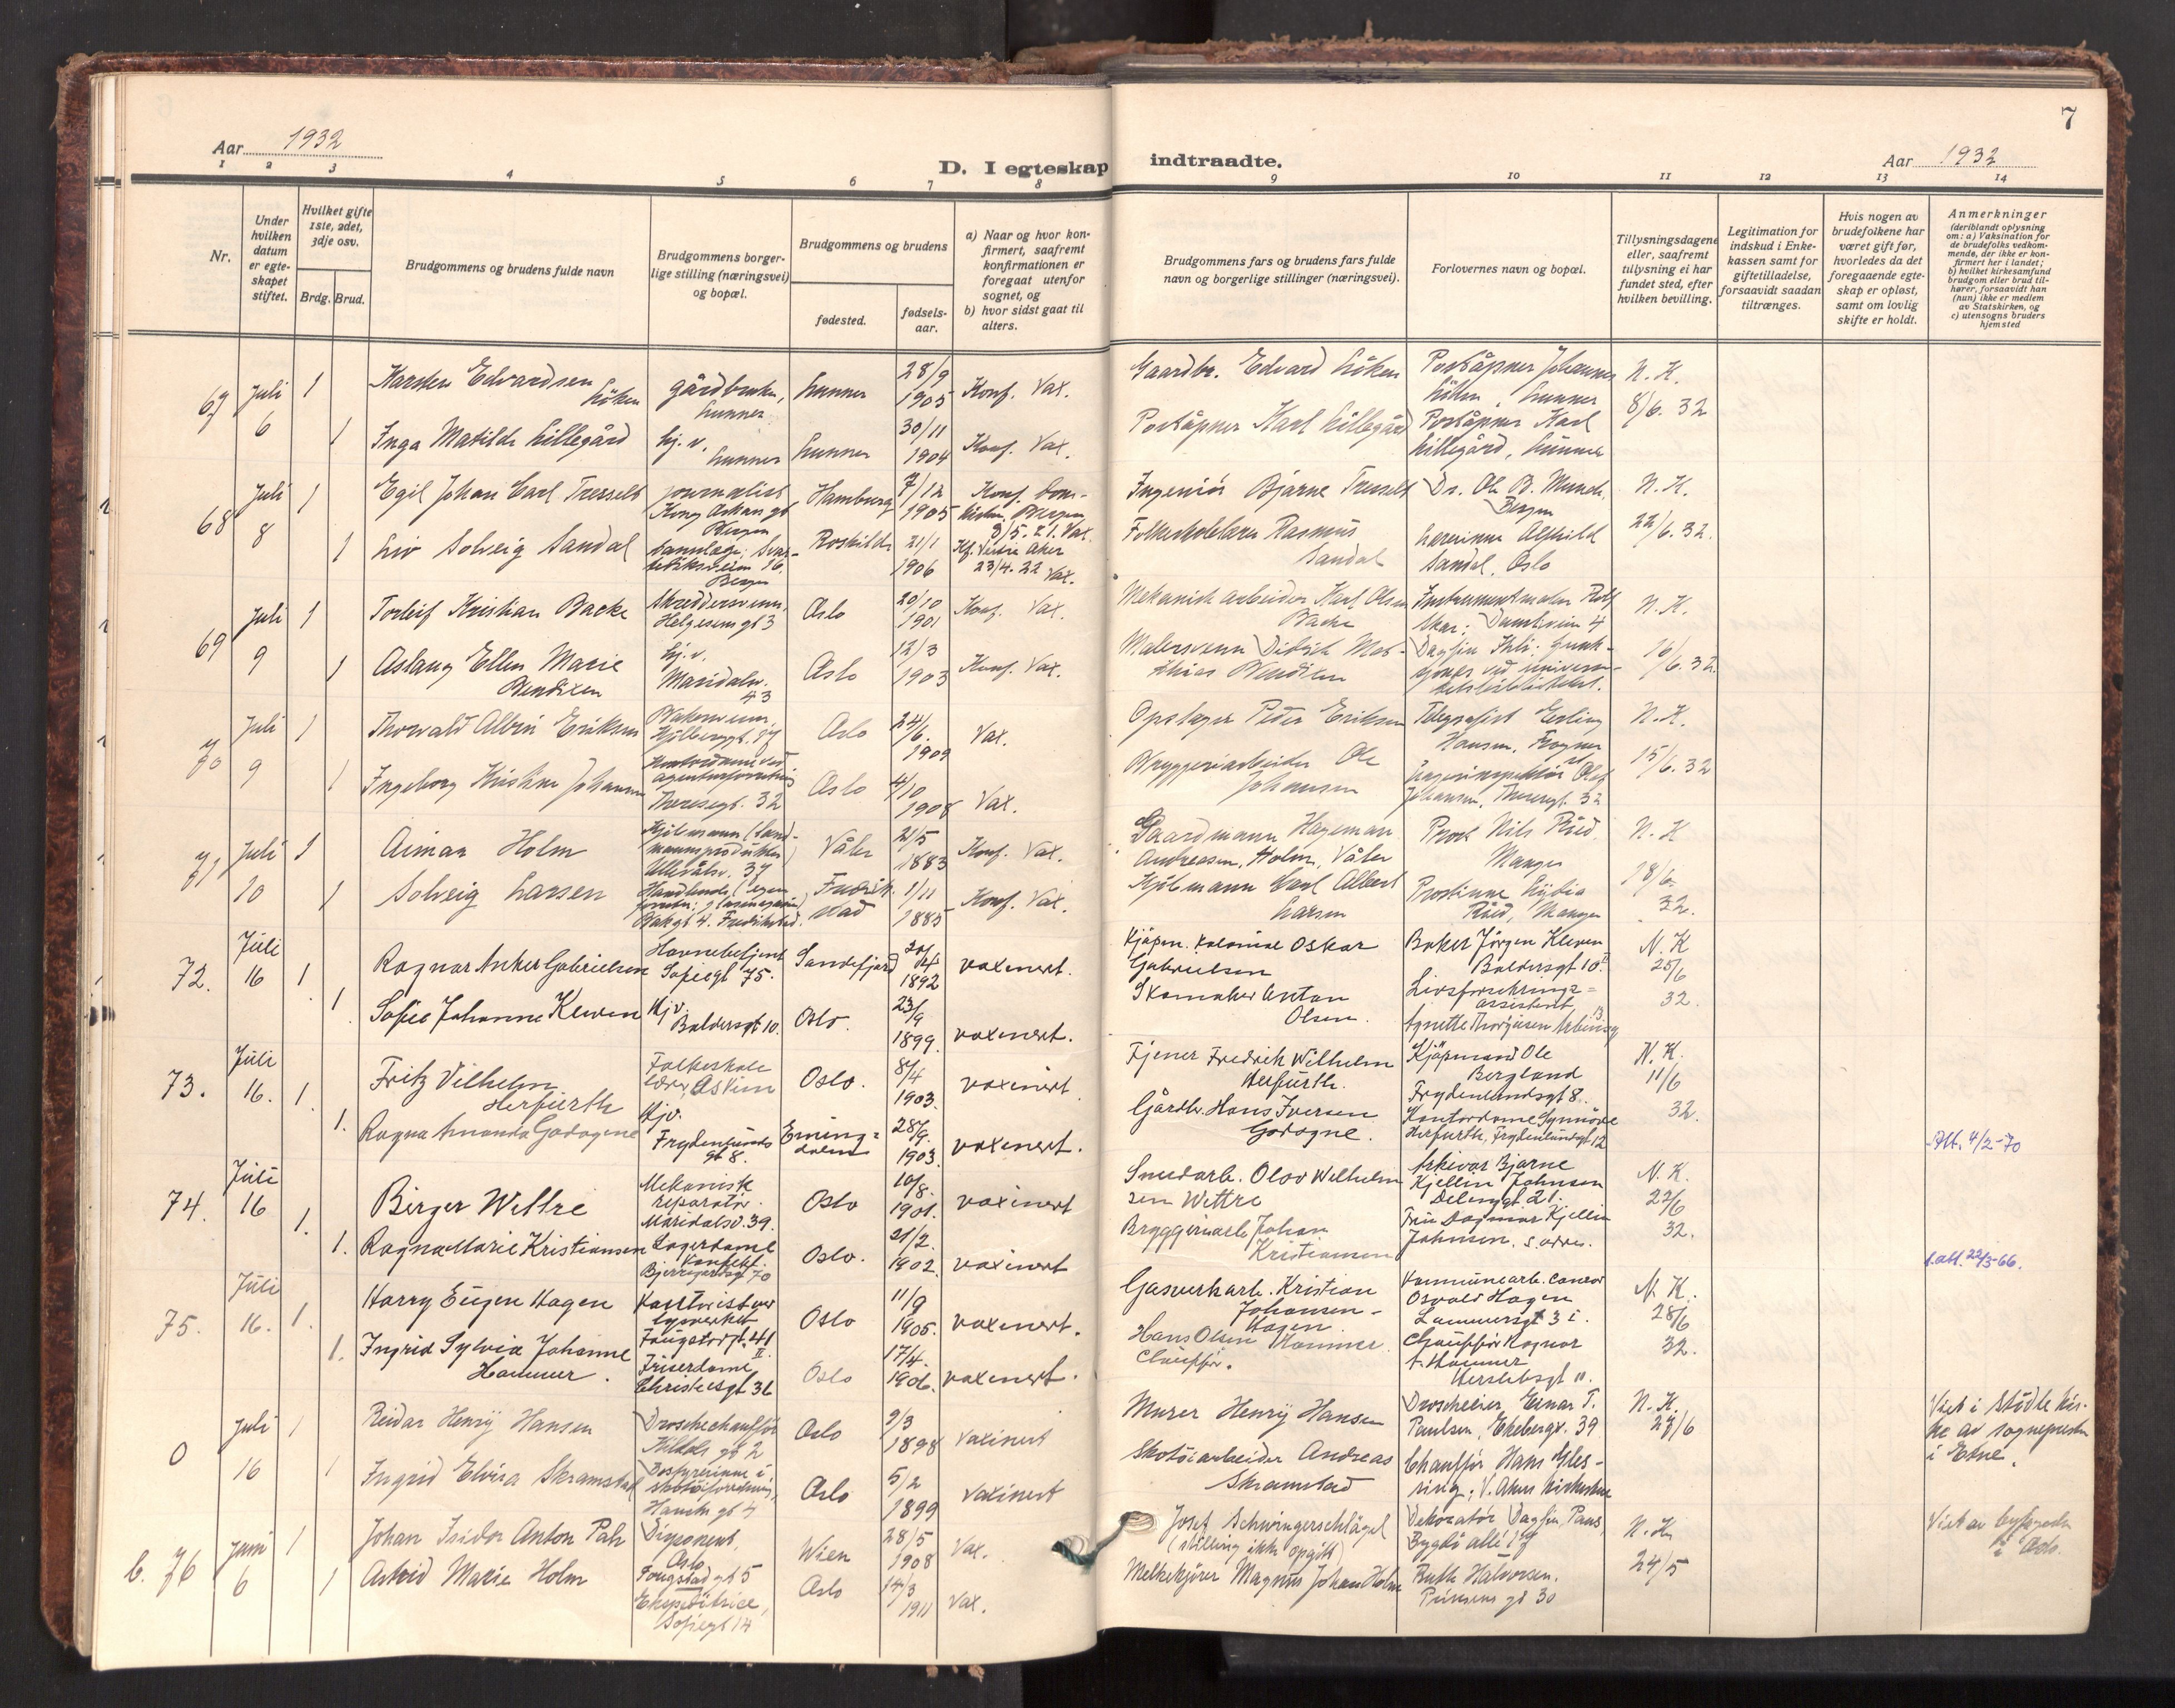 7
Aar 1932
D. I egteskap indtraadte.
Aar 1932
1 2 3 4 5 6 7 8 9 10 11 12 13 14
Nr.
Under hvilken datum er egteskapet stiftet.
Hvilket gifte 1ste, 2det, 3dje osv.
Brdg. Brud.
Brudgommens og brudens fulde navn
Brudgommens borgerlige stilling (næringsvei) og bopæl.
Brudgommens og brudens
fødested.
fødselsaar.
a) Naar og hvor konfirmert, saafremt konfirmationen er foregaat utenfor sognet, og
b) hvor sidst gaat til alters.
Brudgommens fars og brudens fars fulde navn og borgerlige stillinger (næringsvei).
Forlovernes navn og bopæl.
Tillysningsdagene eller, saafremt tillysning ei har fundet sted, efter hvilken bevilling.
Legitimation for indskud i Enkekassen samt for giftetilladelse, forsaavidt saadan tiltrænges.
Hvis nogen av brudefolkene har været gift før, hvorledes da det foregaaende egteskap er opløst, samt om lovlig skifte er holdt.
Anmerkninger (deriblandt oplysning om: a) Vaksination for de brudefolks vedkommende, der ikke er konfirmert her i landet; b) hvilket kirkesamfund brudgom eller brud tilhører, forsaavidt han (hun) ikke er medlem av Statskirken, og c) utensogns bruders hjemsted
67 Juli 6 1 Karsten Edvardsen Löken gårdbruker, Lunner Lunner 28/9 1905 Konf. Vax. Gaardbr. Edvard Löken Poståpner Johannes Löken, Lunner N. K. 8/6. 32
1 Inga Matilde Lillegård hj. v. Lunner Lunner 30/11 1904 Konf. Vax. Poståpner Karl Lillegård Poståpner Karl Lillegård, Lunner
68 Juli 8 1 Egil Johan Carl Tresselt journalist Kong Oskars gt Bergen Hamburg 7/12 1905 Konf. Domkirken, Bergen 8/5. 21. Vax. Ingeniör Bjarne Tresselt Dr. Ole B. Munch, Bergen N. K. 22/6. 32.
1 Liv Solveig Sandal tannlæge; Bergen Roskilde 21/1 1906 Kf. Vestre Aker 23/4. 22 Vax. Folkeskolelærer Rasmus Sandal Lærerinne Alfhild Sandal, Oslo
69 Juli 9 1 Torleif Kristian Backe Skreddersvenn, Helgesens gt 3 Oslo 20/10 1901 Konf. Vax. Mekanisk arbeider Karl Olsen Backe Instrumentmaker Rolf N. K. 16/6. 32.
1 Aslaug Ellen Marie Bendixen hj. v. Maridalsv. 43 Oslo 12/3 1903 Konf. Vax. Malersvenn Didrik Mathias Bendixen Dagfin universitetsbiblioteket.
70 Juli 9 1 Thorvald Albin Eriksen Bakersvenn, Oslo 24/6. 1909 Vax. Opslager Peder Eriksen Telegrafist Erling Hansen, Frogner N. K. 15/6. 32
1 Ingeborg Kristine Johansen Kontordame ved agenturforretning Theresegt. 32 Oslo 4/10 1908 Vax. Bryggeriarbeider Ole Johansen Olaf Johansen, Theresegt. 32
71 Juli 10 1 Aimar Holm Kjöbmann (landmannsprodukter) Ullevålsv. 37 Våler 21/5 1883 Konf. Vax. Gaardmann Hageman Andreasen, Holm, Våler Prost Nils Röed, Manger N. K 18/6. 32.
1 Solveig Larsen Bakgt 4. Fredrikstad. Fredrikstad 1/11 1885 Konf. Vax. Kjöbmann Carl Albert Larsen Prostinne Lydia Röed, Manger
72. Juli 16 1 Ragnar Anker Gabrielsen Havnebetjent Sofiesgt 75. Sandefjord 20/4 1892 vaxinert. Kjöpm. Kolonial Oskar Gabrielsen Baker Jörgen Kleven Baldersgt 10. II N. K 25/6 32.
1. Sofie Johanne Kleven Hjv. Baldersgt 10. Oslo. 23/9 1899. vaxinert. Skomaker Anton Olsen. Livsforsikringsassistent Agnette Thorjusen
73. Juli 16. 1. Fritz Vilhelm Herfürth Folkeskolelærer, Askim Oslo. 8/4 1903. vaxinert Tjener Fredrik Wilhelm Herfürth. Kjöpmand Ole Bergland Frydenlundsgt 8. N. K. 11/6 32.
1. Ragna Amanda Godagne Hjv. Frydenlunds gt 8. 28/9. 1903. vaxinert. Gårdbr. Hans Iversen Godagne. Kontordame Synnöve Herfurth, Frydenlundsgt 12
Att. 4/2-70
74. Juli 16 1. Birger Wettre Mekanisk reparatör Maridalsv. 39. Oslo 10/8. 1901. vaxinert Smedarb. Olav Welhelmsen Wettre Arkivar Bjarne Kjellin Johnsen Delenggt. 21. N. K. 22/6 32.
1. Ragna Marie Kristiansen Lagerdame Konfekt. Bjerregårdsgt 70 Oslo. 21/2. 1902. vaxinert Bryggeriarb. Johan Kristiansen Fru Dagmar Kjellin Johnsen, s. adres.
1. att. 22/3-66.
75. Juli 16. 1. Harry Eugen Hagen Kontorist ved Lysverket Fougstadsgt. 41 II. Oslo 11/9 1905. vaxinert. Gasverkarb. Kristian Johansen - Hagen Kommunearb. Conrad Osvald Hagen Lammersgt 3 i. N. K. 28/6 32.
1. Ingrid Sylvia Johanne Hammer. Friserdame, Christiesgt 36 Oslo 17/4. 1906. vaxinert. Hans Olsen Hammer. Chauffør. Chauffør Ragnar A. Hammer Herslebsgt 11.
0 Juli 16 1 Reidar Henry Hansen Droschechauffør Oslo 2/3 1898 Vaxinert Murer Henry Hansen Droscheeier Einar T. Paulsen, Ekebergv. 39 N. K. 28/6 Viet i Stödle kirke av sognepresten i Etne.
1 Ingrid Elvira Skramstad Oslo 5/2 1899 Vaxinert Skotöiarbeider Andreas Skramstad Chauffør Hans
b. 76 Juni 6 1 Johan Isidor Anton Pals Disponent, Oslo, Fougstadgt 5 Wien 28/5 1908 Vax. Josef Schwingerschlägel (stilling ikke opgitt) Dekoratör Dagfin Paus Bygdö allé 17 N. K. 24/5 Viet av byfogden i Oslo.
1 Astrid Marie Holm Ekspeditrice, Sofiegt 14 Oslo 14/3 1911 Vax. Melkekjörer Magnus Johan Holm Ruth Halvorsen. Prinsens gt 30